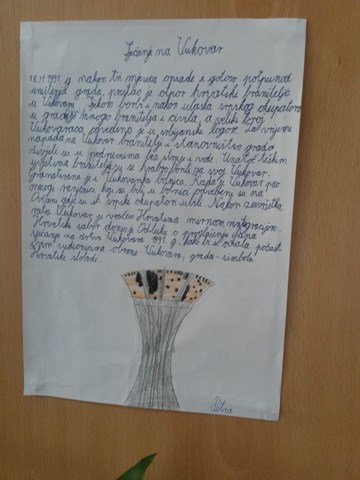 Sjećanje na Vukovar
18.11.1991.g nakon tri mjeseca opsade i gotovo potpunog
uništenja grada, prestao je otpor hrvatskih branitelja
u Vukovaru. Tijekom borbi i nakon ulaska srpskog okupatora
u grad ubijeni mnogo branitelja i civila, a veliki broj
Vukovaraca odvedeno je u srbijanske logore. Za vrijeme
napada na Vukovar branitelji i stanovništvo grada
živjeli su u podrumima bez struje i vode. Unatoč teškim
uvjetima branitelji su hrabro borili za svoj Vukovar.
Granatirana je i Vukovarska bolnica. Kada je Vukovar pao
mnogi ranjenici koji su bili u bolnici odvedeni su na
Ovčaru gdje su ih srpski okupatori ubili. Nakon završetka
rata Vukovar je vraćen Hrvatskoj mirnom reintegracijom.
Hrvatski sabor donio je Odluku o proglašenju dana
sjećanja na žrtvu Vukovara 1991.g. kako bi se odala počast
svim sudionicima obrane Vukovara, grada-simbola
Hrvatske slobode.
Petra